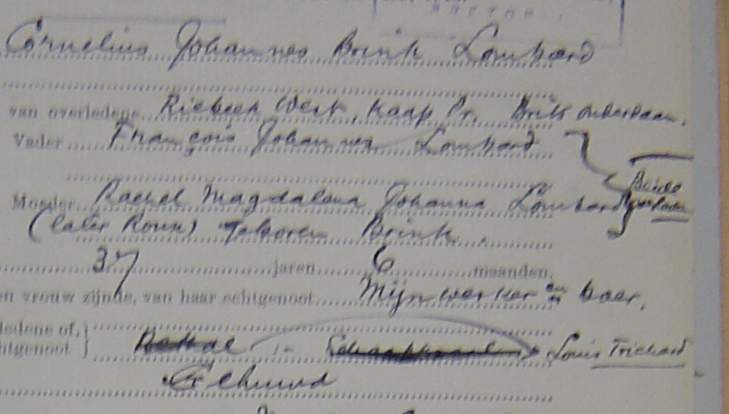 Cornelius Johannes Brink Lombard
van overledene Riebeek West, Kaap Pr. Brits onderdaan.
Vader François Johannes Lombard
Moeder Rachel Magdalena Johanna Lombard
(later Roux) Geboren Brink.
Beide overleden
37 jaren 6 maanden
en vrouw zijnde, van haar echtgenoot Mijnwerker en boer.
ledene of,
htgenoot } Louis Trichard
Gehuwd